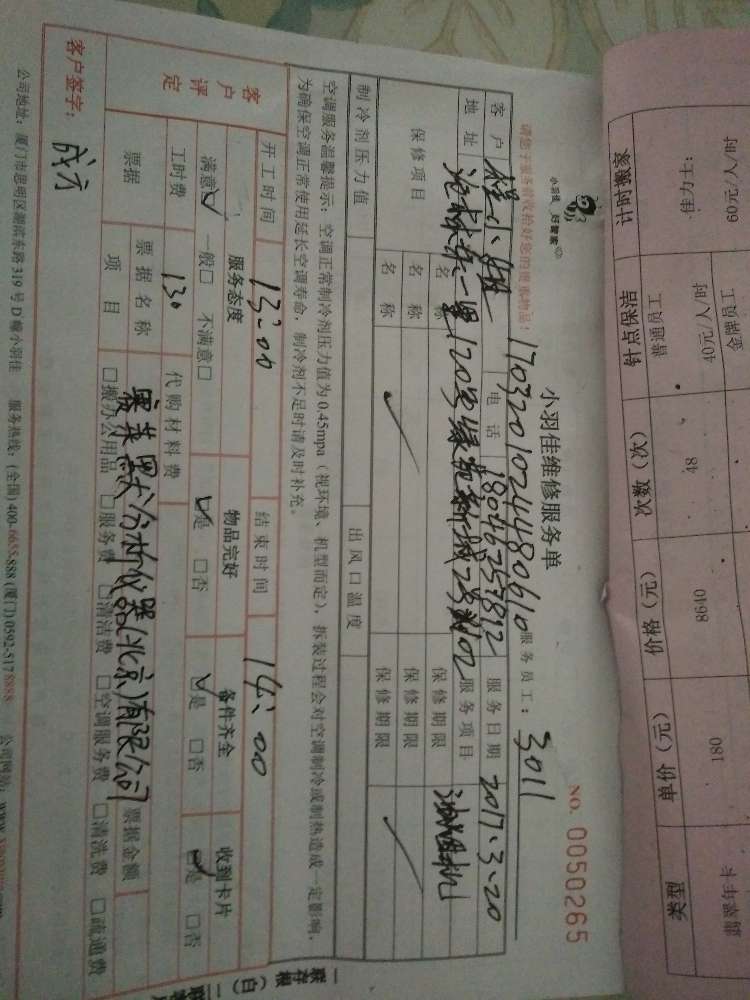 小羽佳 好管家
小羽佳维修服务单
NO. 0050265
请您于服务前收拾好您的贵重物品!
17032010244480610
服务员工: 3011
客户 程小姐 电话 18046257812 服务日期 2017.3.20
地址 服务项目 油烟机
保修项目 名称 保修期限
名称 保修期限
名称 保修期限
制冷剂压力值 出风口温度
空调服务温馨提示:空调正常制冷剂压力值为0.45mpa(视环境、机型而定),拆装过程会对空调制冷或制热造成一定影响,
为确保空调正常使用延长空调寿命,制冷剂不足时请及时补充。
客户评定
开工时间 13:00 结束时间 14:00
服务态度 物品完好 备件齐全 收到卡片
满意☑ 一般□ 不满意□ ☑是 □否 ☑是 □否 ☑是 □否
工时费 130 代购材料费
票据 票据名称 分析仪器(北京)有限公司 票据金额
项目 □搬办公用品 □服务费 □清洁费 □空调服务费 □清洗费 □疏通费
客户签字:
公司地址:厦门市思明区湖滨东路319号D幢小羽佳 服务热线:(全国)400-6655-888 (厦门)0592-5178888 公司网站:
一联存根(白)
类型 单价(元) 价格(元) 次数(次) 钟点保洁 计时搬家
翡翠年卡 180 8640 48 普通员工 40元/人/时 金牌员工 佳力士: 60元/人/时